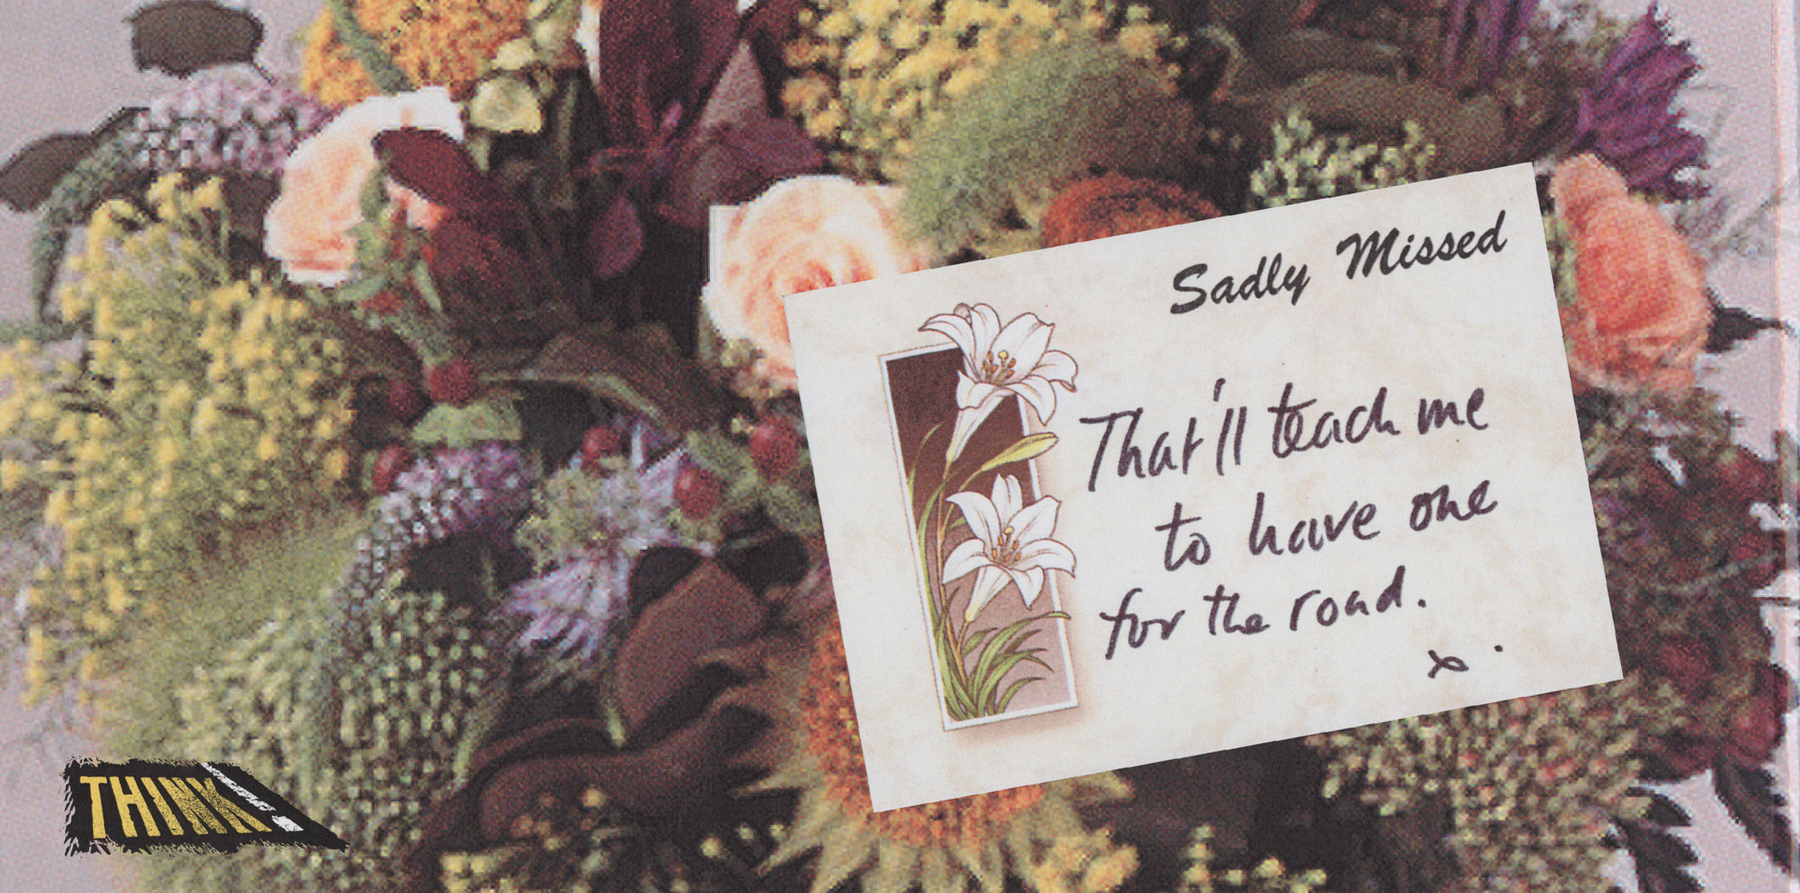 Sadly Missed
That'll teach me
to have one
for the road.
x.
THINK!